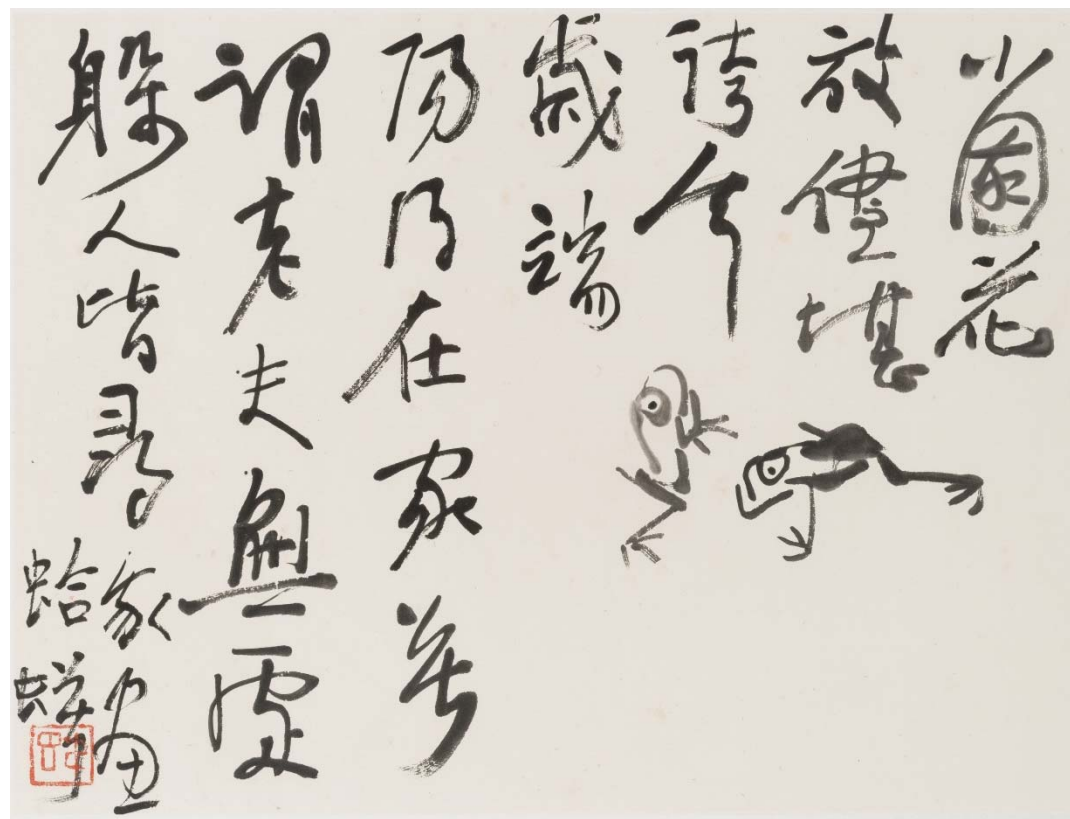 小園花
放儘堪
誇今
歲端
陽得在家莫
謂老夫無處
躲人皆尋我畫
蛤蟆